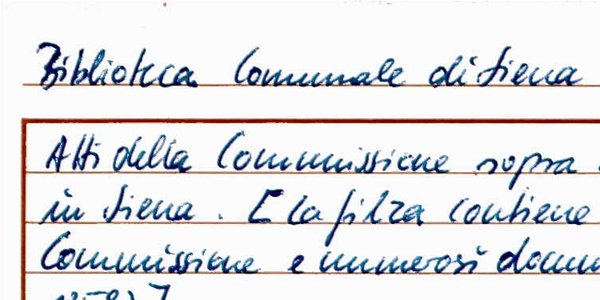 Biblioteca Comunale di Siena
Atti della Commissione sopra
in Siena. [La filza contiene
Commissione e numerosi docum